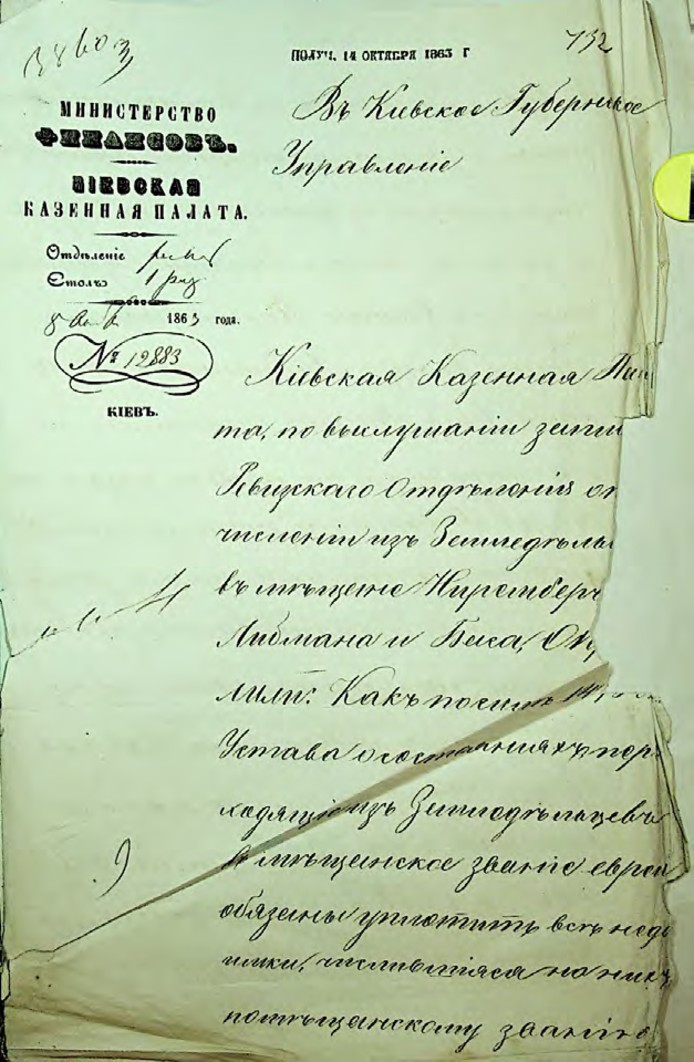 38603
ПОЛУЧ. 14 ОКТЯБРЯ 1863 Г
732
МИНИСТЕРСТВО
ФИНАНСОВЪ.
КІЕВСКАЯ
КАЗЕННАЯ ПАЛАТА.
Отдѣленіе
Столъ 1
1863 года.
№ 12883
КІЕВЪ.
Въ Кіевское Губернское
Управленіе
Кіевская Казенная
та, по выслушаніи
Ревизкаго Отдѣленія
численіи изъ
въ мѣщане Ниремберг
Либмана и
лили: Какъ по силѣ
Устава о состояніяхъ пере
ходящіе изъ Земледѣльцевъ
въ мѣщанское званіе евреи
обязаны уплотить всѣ недо
имки, числившіяся на нихъ
по мѣщанскому званію